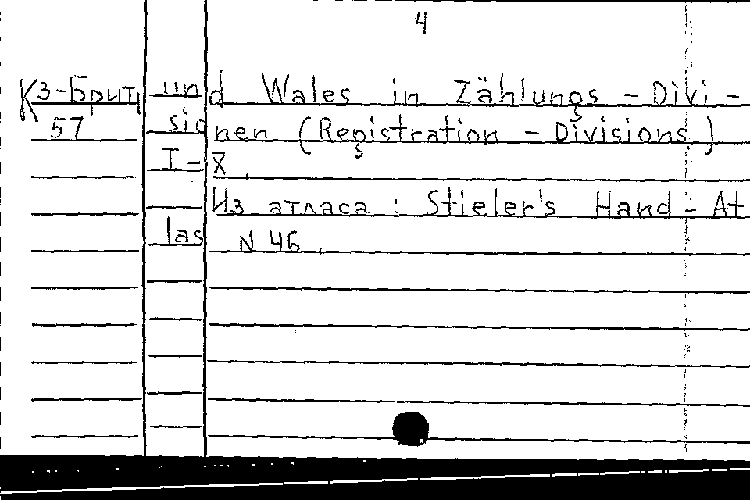 4
Кз-Брит und Wales in Zählungs - Divi -
57 sionen (Registration - Divisions)
I - X.
Из атласа : Stieler's Hand - At
las N 46.